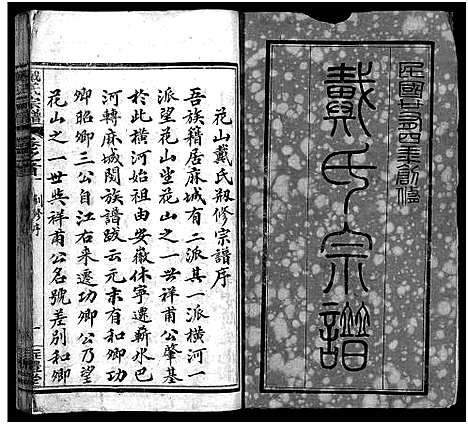 民國廿四年創修
戴氏宗譜
花山戴氏刱修宗譜序
吾族籍居麻城有二派其一派橫河一
派望花山望花山之一世祥甫公肇基
於此橫河始祖由安徽休寧遷蘄水巴
河轉麻城閱族譜跋云元末有和卿功
卿昭卿三公自江右來遷功卿公乃望
花山之一世與祥甫公名號差別和卿
戴氏宗譜
卷之首
創修序
一